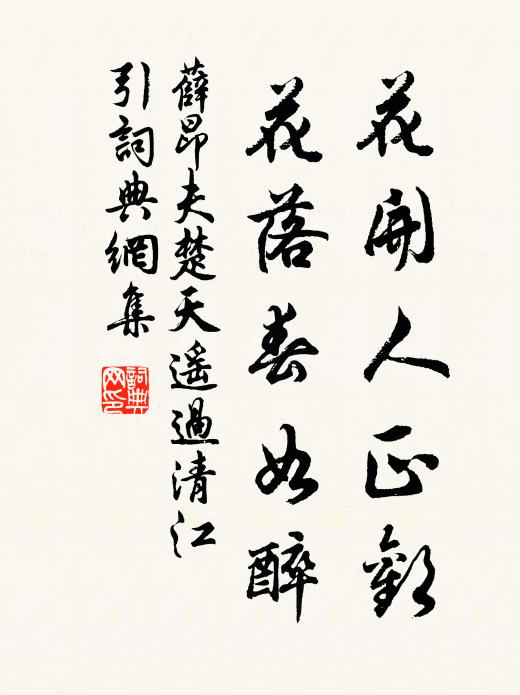 花開人正歡
花落春如醉
薛昂夫楚天遥過清江
引詞典網集
詞典網印